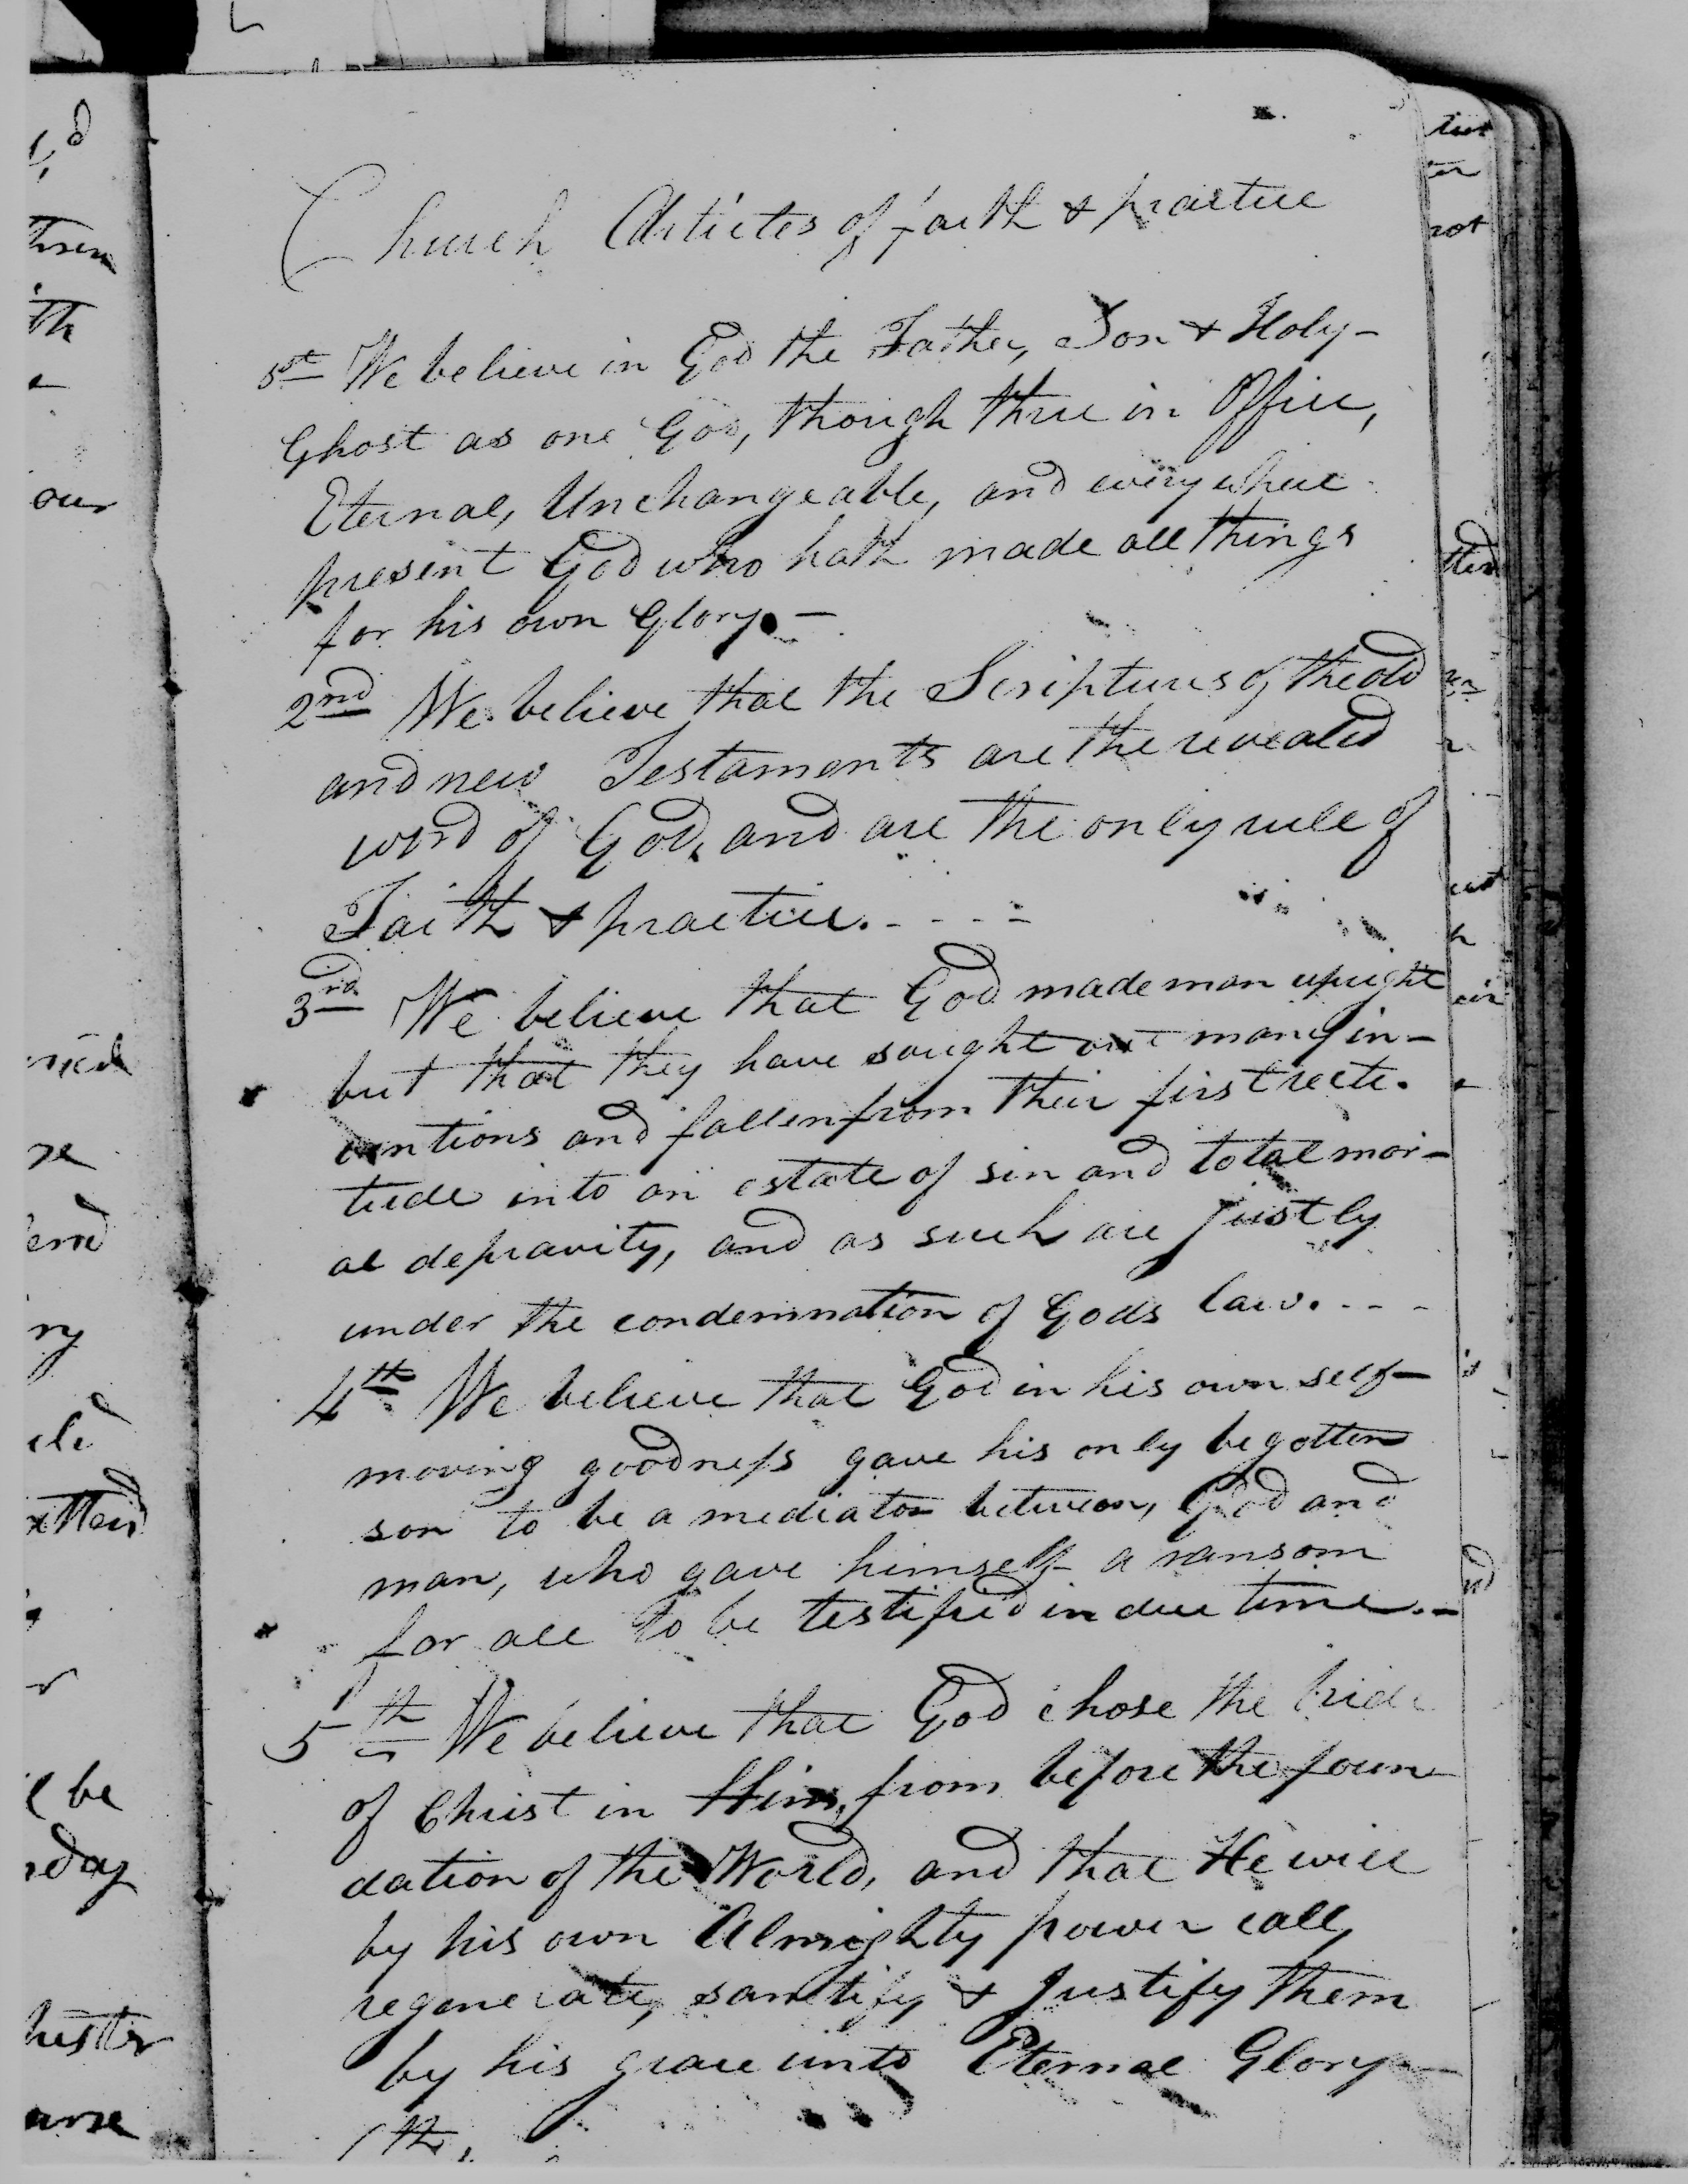 Church Articles of faith & practice
1st We believe in God the Father, Son & Holy-
Ghost as one God, though three in Office,
Eternal, Unchangeable, and everywhere
present God who hath made all things
for his own Glory.-
2nd We believe that the Scriptures of the old
and new Testaments are the revealed
word of God, and are the only rule of
Faith & practice. - - - -
3rd We believe that God made man upright
but that they have sought out many in-
ventions and fallen from their first recti-
tude into an estate of sin and total mor-
al depravity, and as such are justly
under the condemnation of Gods law. - - -
4th We believe that God in his own self-
moving goodness gave his only begotten
son to be a mediator between, God and
man, who gave himself a ransom
for all to be testified in due time.-
5th We believe that God chose the bride
of Christ in Him, from before the foun-
dation of the World, and that He will
by his own Almighty power call,
regenerate, sanctify & Justify them
by his grace unto Eternal Glory-
th